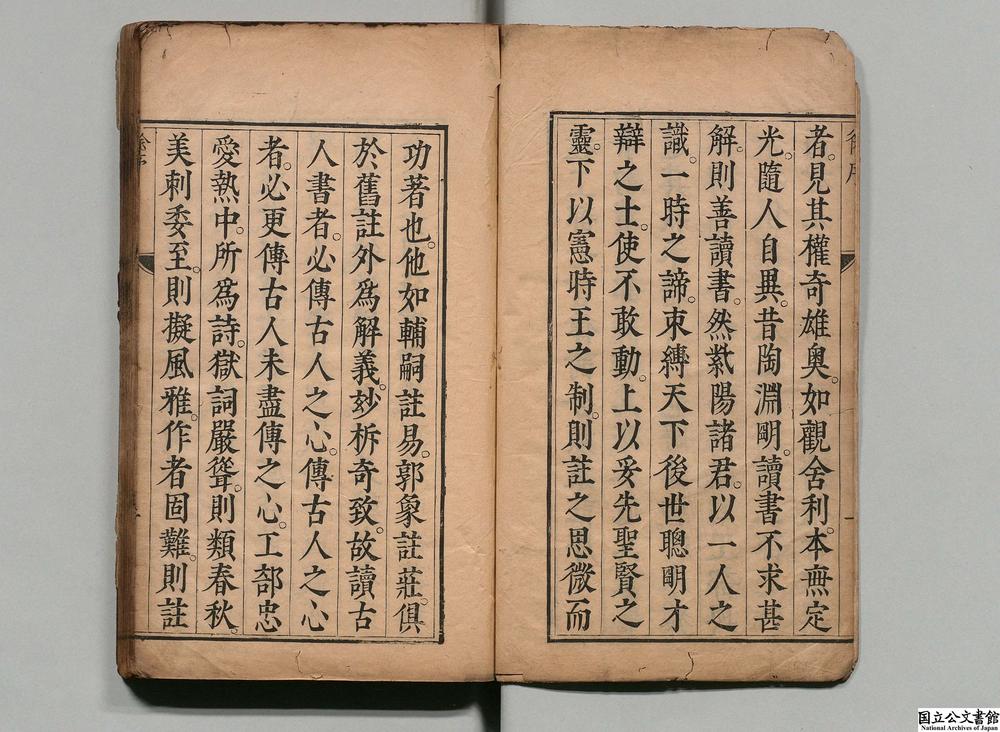 者。見其權奇雄奧。如觀舍利。本無定
光。隨人自異。昔陶淵明。讀書不求甚
解。則善讀書。然紫陽諸君。以一人之
識。一時之諦。束縛天下後世聰明才
辯之士。使不敢動。上以妥先聖賢之
靈。下以憲時王之制。則註之思微而
功著也。他如輔嗣註易。郭象註莊。俱
於舊註外爲解義。妙析奇致。故讀古
人書者。必傳古人之心。傳古人之心
者。必更傳古人未盡傳之心。工部忠
愛熱中。所爲詩。獄詞嚴聳。則類春秋。
美刺委至。則擬風雅。作者固難。則註
国立公文書館
National Archives of Japan